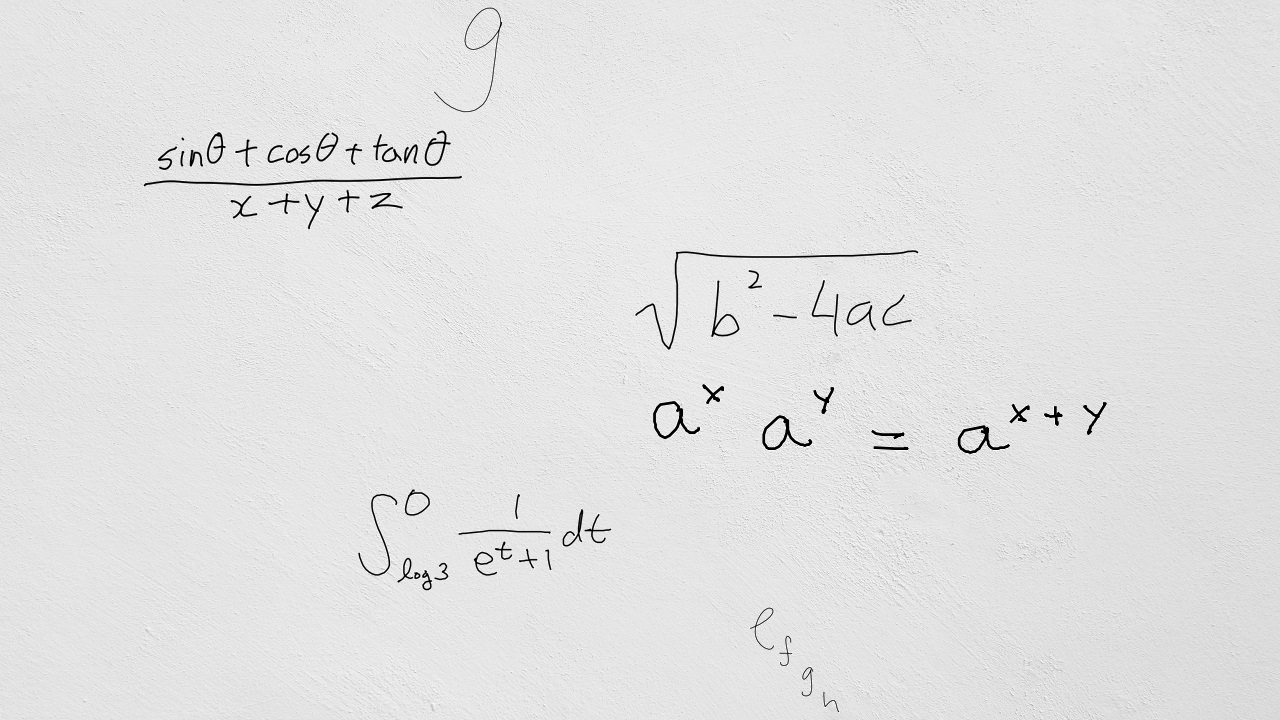 g
\frac{\sin\theta + \cos\theta + \tan\theta}{x + y + z}
\sqrt{b^2 - 4ac}
a^x a^y = a^{x + y}
\int_{\log 3}^{0} \frac{1}{e^t + 1} dt
e_{f_{g_h}}